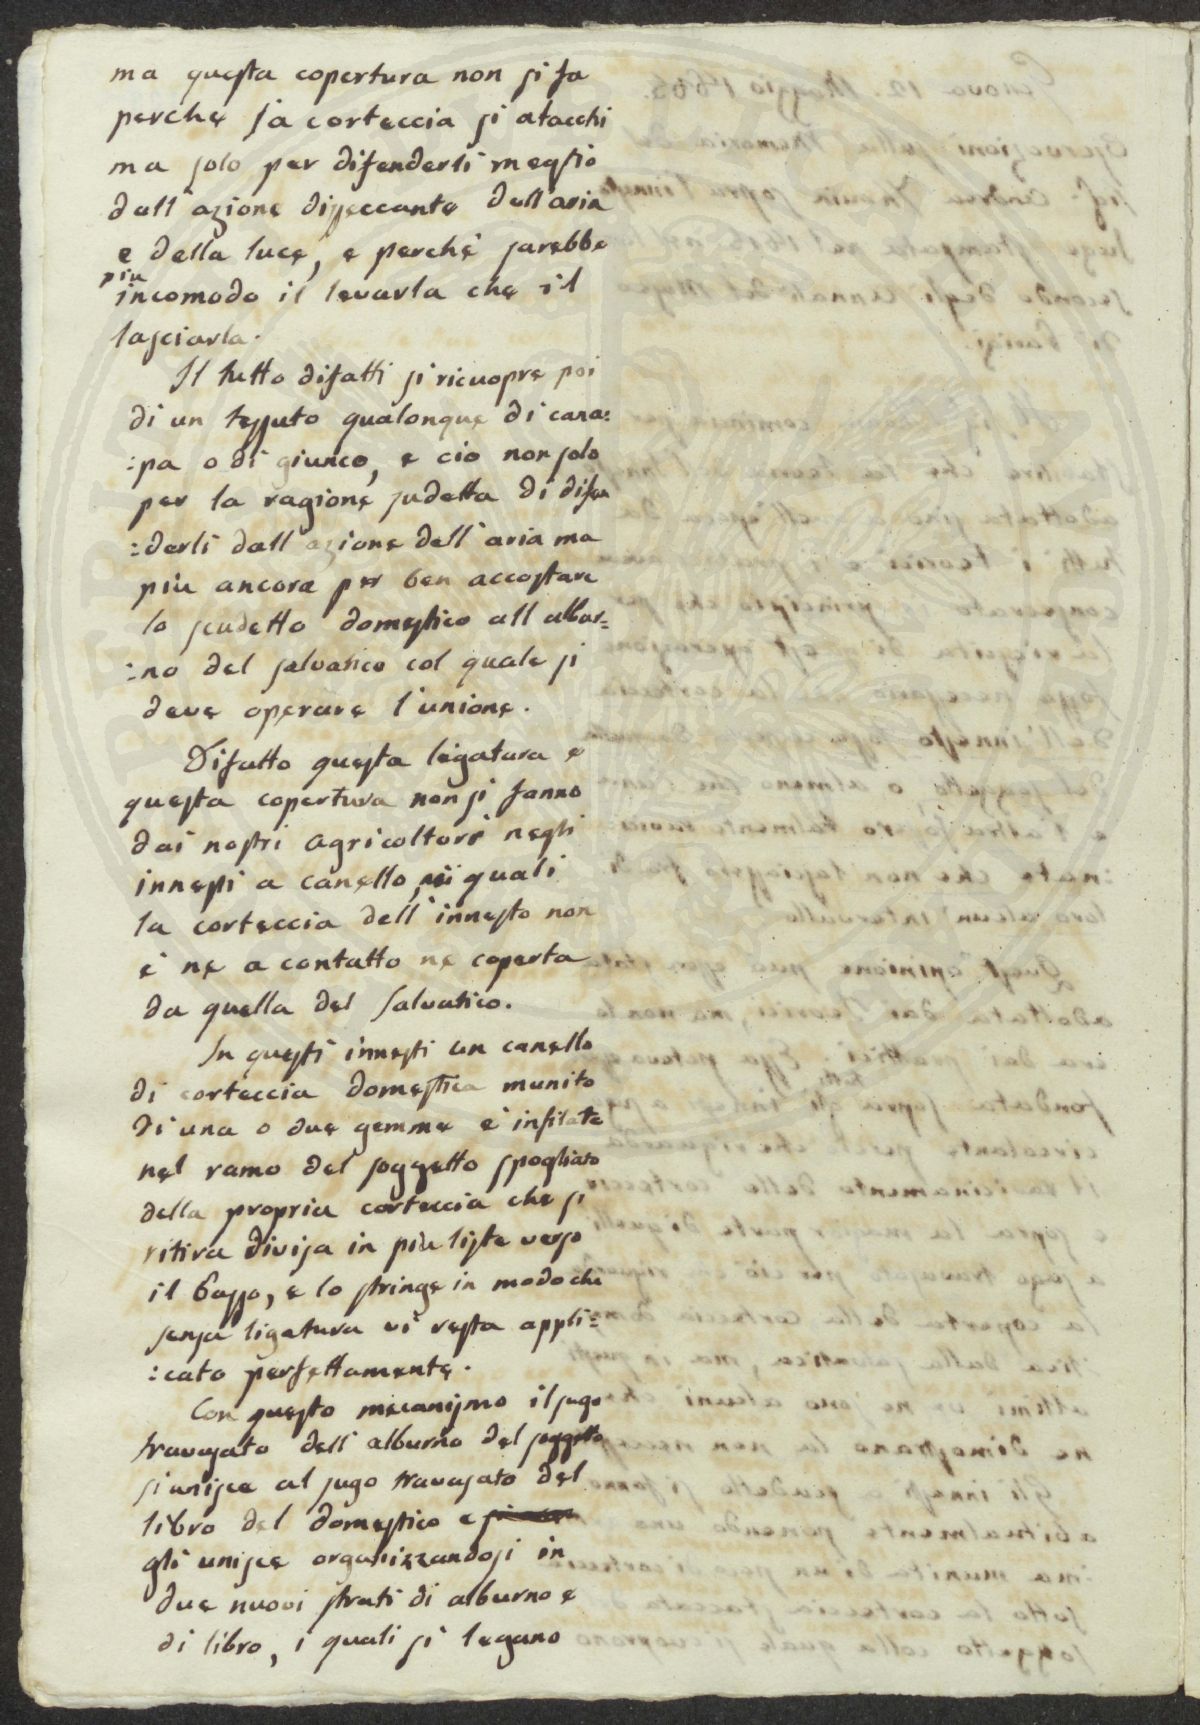 ma questa copertura non si fa
perche la corteccia si atacchi
ma solo per difenderli meglio
dall'azione disseccante dell'aria
e della luce, e perchè sarebbe
più
incomodo il levarla che il
lasciarla.
Il tutto difatti si ricuopre poi
di un tessuto qualonque di cana:
:pa o di giunco, e cio non solo
per la ragione sudetta di difen
:derli dall'azione dell'aria ma
più ancora per ben accostare
lo scudetto domestico all'albur=
:no del salvatico col quale si
deve operare l'unione.
Difatto questa legatura e
questa copertura non si fanno
dai nostri agricoltori negli
innesti a canello, nei quali
la corteccia dell'innesto non
è ne a contatto ne coperta
da quella del salvatico.
In questi innesti un canello
di corteccia domestica munito
di una o due gemme è infilato
nel ramo del soggetto spogliato
della propria corteccia che si
ritira divisa in più liste verso
il basso, e lo stringe in modo che
senza ligatura vi resta appli=
:cato perfettamente.
Con questo mecanismo il sugo
travasato dell'alburno del soggetto
si unisce al sugo travasato del
libro del domestico e
gli unisce organizzandosi in
due nuovi strati di alburno e
di libro, i quali si legano